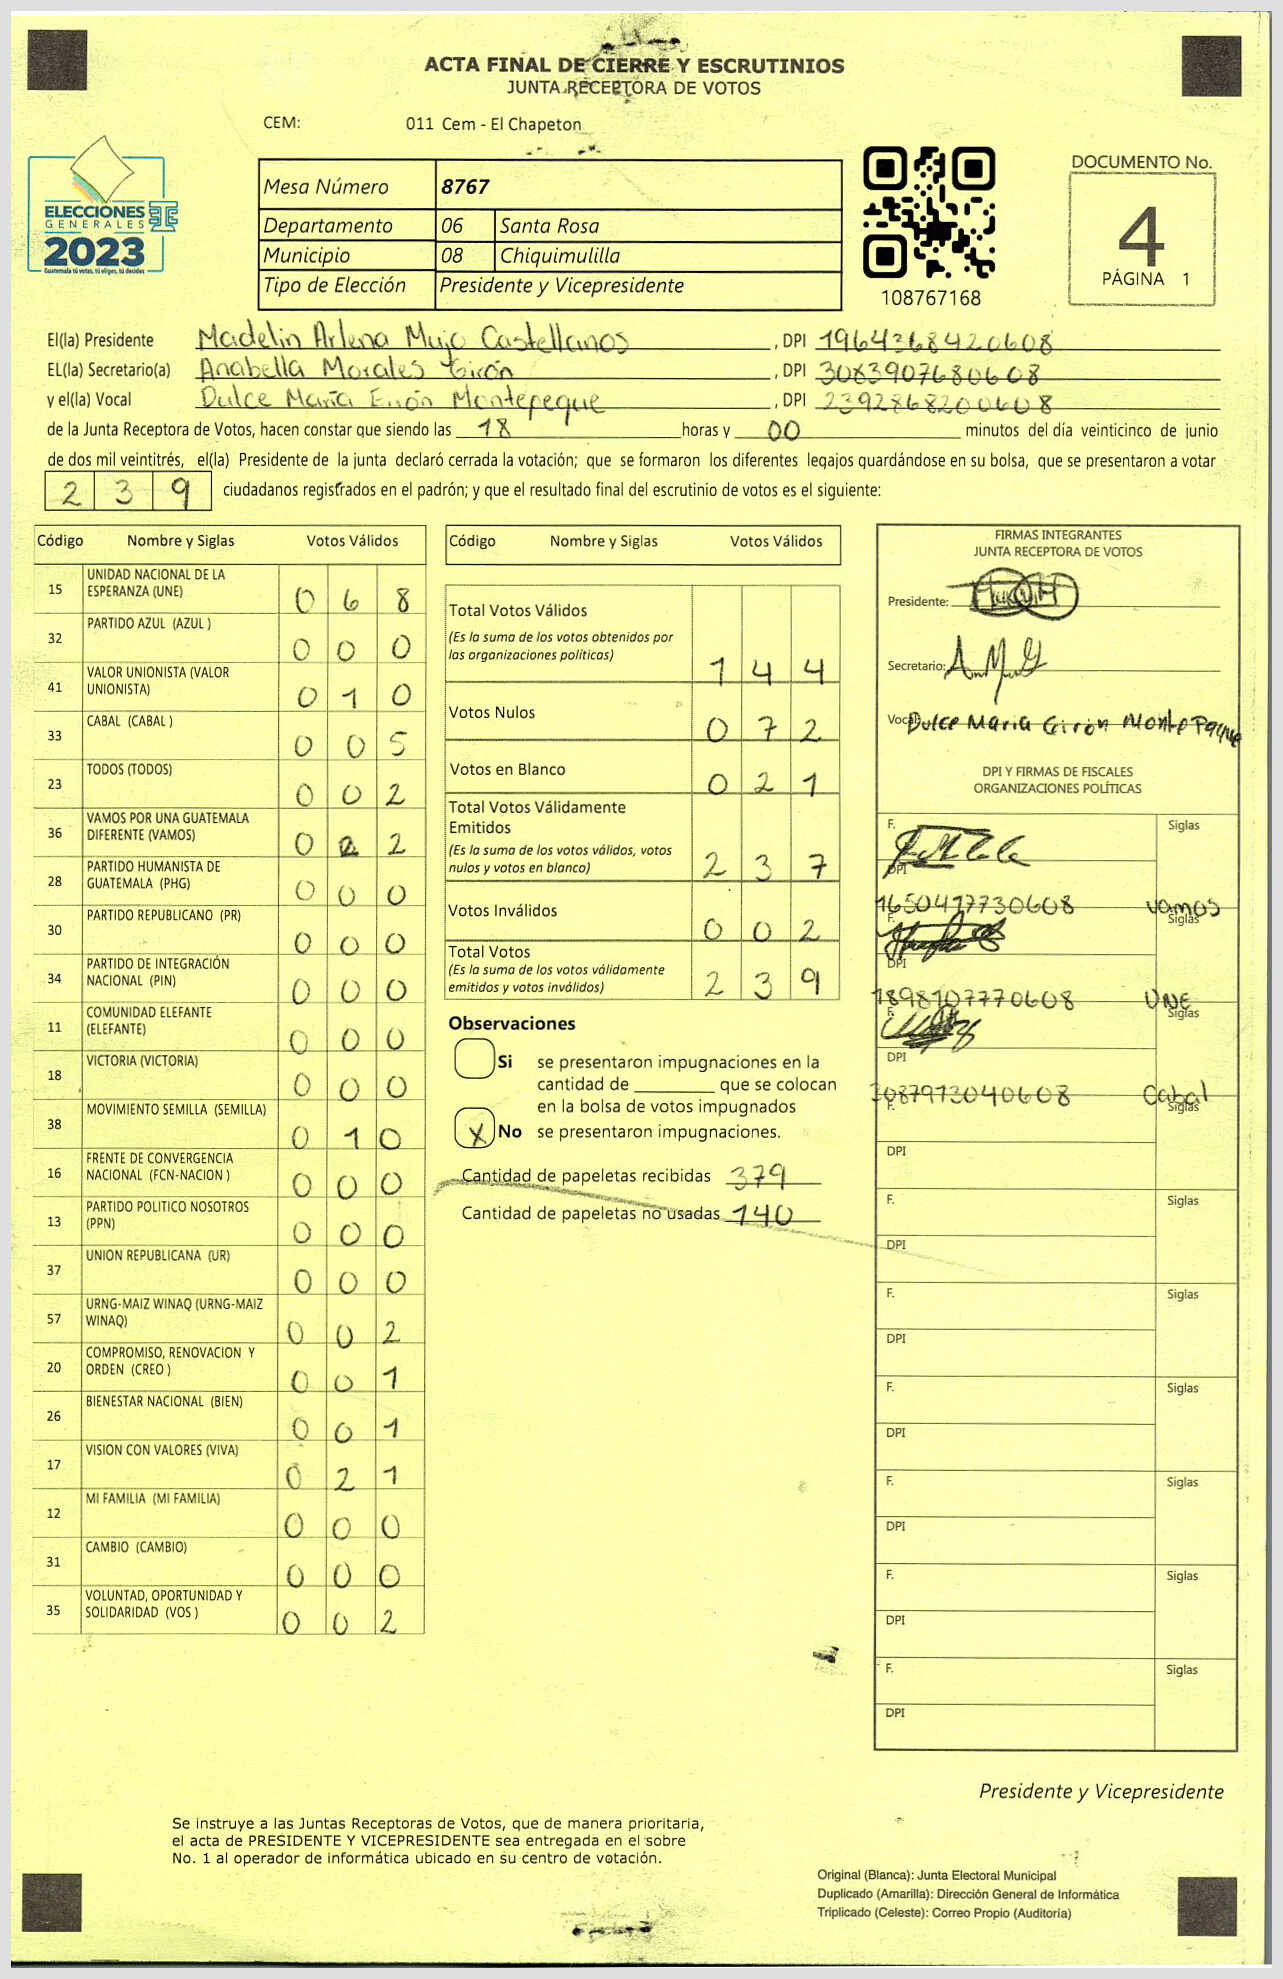 ACTA FINAL DE CIERRE Y ESCRUTINIOS
JUNTA RECEPTORA DE VOTOS
CEM: 011 Cem - El Chapeton
ELECCIONES
GENERALES
2023
Guatemala tú votas, tú eliges, tú decides
Mesa Número 8767
Departamento 06 Santa Rosa
Municipio 08 Chiquimulilla
Tipo de Elección Presidente y Vicepresidente
108767168
DOCUMENTO No.
4
PÁGINA 1
El(la) Presidente Madelin Arlena Mujo Castellanos, DPI 1964368420608
EL(la) Secretario(a) Anabella Morales Girón, DPI 3083907680608
y el(la) Vocal Dulce María Montepeque, DPI 2392868200608
de la Junta Receptora de Votos, hacen constar que siendo las 18 horas y 00 minutos del día veinticinco de junio
de dos mil veintitrés, el(la) Presidente de la junta declaró cerrada la votación; que se formaron los diferentes legajos guardándose en su bolsa, que se presentaron a votar
239 ciudadanos registrados en el padrón; y que el resultado final del escrutinio de votos es el siguiente:
Código Nombre y Siglas Votos Válidos
15 UNIDAD NACIONAL DE LA ESPERANZA (UNE) 0 6 8
32 PARTIDO AZUL (AZUL ) 0 0 0
41 VALOR UNIONISTA (VALOR UNIONISTA) 0 1 0
33 CABAL (CABAL ) 0 0 5
23 TODOS (TODOS) 0 0 2
36 VAMOS POR UNA GUATEMALA DIFERENTE (VAMOS) 0 2 2
28 PARTIDO HUMANISTA DE GUATEMALA (PHG) 0 0 0
30 PARTIDO REPUBLICANO (PR) 0 0 0
34 PARTIDO DE INTEGRACIÓN NACIONAL (PIN) 0 0 0
11 COMUNIDAD ELEFANTE (ELEFANTE) 0 0 0
18 VICTORIA (VICTORIA) 0 0 0
38 MOVIMIENTO SEMILLA (SEMILLA) 0 1 0
16 FRENTE DE CONVERGENCIA NACIONAL (FCN-NACION ) 0 0 0
13 PARTIDO POLITICO NOSOTROS (PPN) 0 0 0
37 UNION REPUBLICANA (UR) 0 0 0
57 URNG-MAIZ WINAQ (URNG-MAIZ WINAQ) 0 0 2
20 COMPROMISO, RENOVACION Y ORDEN (CREO ) 0 0 1
26 BIENESTAR NACIONAL (BIEN) 0 0 1
17 VISION CON VALORES (VIVA) 0 2 1
12 MI FAMILIA (MI FAMILIA) 0 0 0
31 CAMBIO (CAMBIO) 0 0 0
35 VOLUNTAD, OPORTUNIDAD Y SOLIDARIDAD (VOS ) 0 0 2
Código Nombre y Siglas Votos Válidos
Total Votos Válidos
(Es la suma de los votos obtenidos por
las organizaciones políticas) 1 4 4
Votos Nulos 0 7 2
Votos en Blanco 0 2 1
Total Votos Válidamente
Emitidos
(Es la suma de los votos válidos, votos
nulos y votos en blanco) 2 3 7
Votos Inválidos 0 0 2
Total Votos
(Es la suma de los votos válidamente
emitidos y votos inválidos) 2 3 9
Observaciones
Si se presentaron impugnaciones en la
cantidad de ________ que se colocan
en la bolsa de votos impugnados
X No se presentaron impugnaciones.
Cantidad de papeletas recibidas 379
Cantidad de papeletas no usadas 140
FIRMAS INTEGRANTES
JUNTA RECEPTORA DE VOTOS
Presidente:
Secretario:
Vocal: Dulce Maria Girón Montepeque
DPI Y FIRMAS DE FISCALES
ORGANIZACIONES POLÍTICAS
F. Siglas
DPI
1650417730608 vamos
F. Siglas
DPI
1898107770608 UNE
F. Siglas
DPI
3087973040608 Cabal
F. Siglas
DPI
F. Siglas
DPI
F. Siglas
DPI
F. Siglas
DPI
F. Siglas
DPI
F. Siglas
DPI
F. Siglas
DPI
Presidente y Vicepresidente
Se instruye a las Juntas Receptoras de Votos, que de manera prioritaria,
el acta de PRESIDENTE Y VICEPRESIDENTE sea entregada en el sobre
No. 1 al operador de informática ubicado en su centro de votación.
Original (Blanca): Junta Electoral Municipal
Duplicado (Amarilla): Dirección General de Informática
Triplicado (Celeste): Correo Propio (Auditoría)